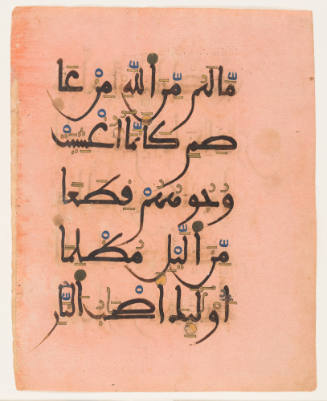 مَّا لَهُم مِّنَ اللَّهِ مِنْ عَا
صِمٍ كَأَنَّمَا أُغْشِيَتْ
وُجُوهُهُمْ قِطَعًا
مِّنَ الَّيْلِ مُظْلِمًا
أُوْلَٰئِكَ أَصْحَٰبُ النَّارِ